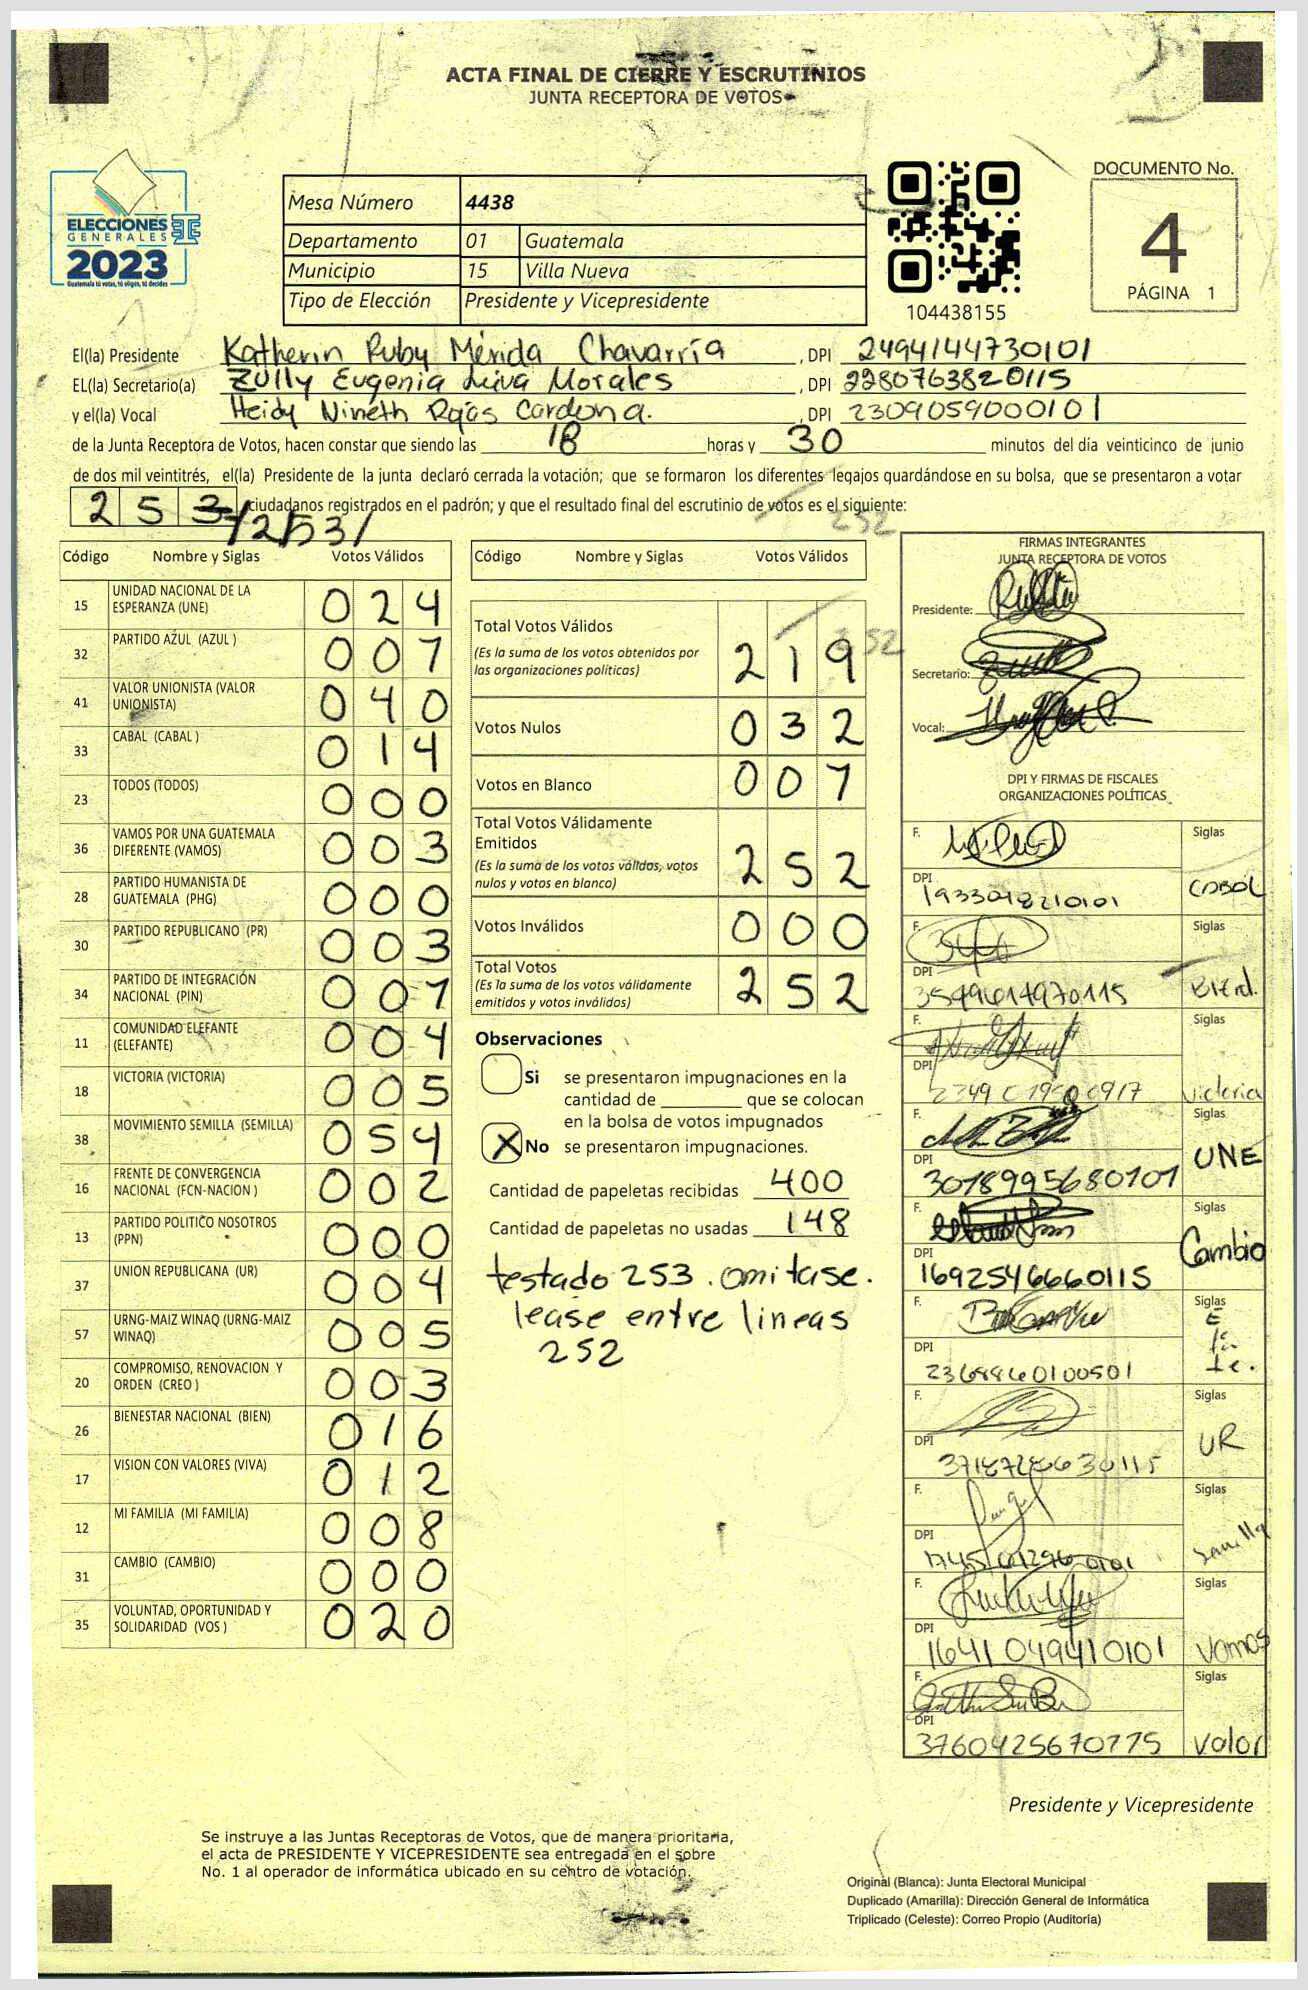 ACTA FINAL DE CIERRE Y ESCRUTINIOS
JUNTA RECEPTORA DE VOTOS
ELECCIONES
GENERALES
TSE
2023
Guatemala tú votas, tú eliges, tú decides
Mesa Número 4438
Departamento 01 Guatemala
Municipio 15 Villa Nueva
Tipo de Elección Presidente y Vicepresidente
104438155
DOCUMENTO No.
4
PÁGINA 1
El(la) Presidente Katherin Ruby Mérida Chavarría , DPI 2494144730101
EL(la) Secretario(a) Zully Eugenia Leiva Morales , DPI 2280763820115
y el(la) Vocal Heidy Nineth Rojas Cardona. , DPI 2309059000101
de la Junta Receptora de Votos, hacen constar que siendo las 18 horas y 30 minutos del día veinticinco de junio
de dos mil veintitrés, el(la) Presidente de la junta declaró cerrada la votación; que se formaron los diferentes legajos guardándose en su bolsa, que se presentaron a votar
253 /253/ ciudadanos registrados en el padrón; y que el resultado final del escrutinio de votos es el siguiente:
252
Código Nombre y Siglas Votos Válidos
15 UNIDAD NACIONAL DE LA ESPERANZA (UNE) 024
32 PARTIDO AZUL (AZUL ) 007
41 VALOR UNIONISTA (VALOR UNIONISTA) 040
33 CABAL (CABAL ) 014
23 TODOS (TODOS) 000
36 VAMOS POR UNA GUATEMALA DIFERENTE (VAMOS) 003
28 PARTIDO HUMANISTA DE GUATEMALA (PHG) 000
30 PARTIDO REPUBLICANO (PR) 003
34 PARTIDO DE INTEGRACIÓN NACIONAL (PIN) 007
11 COMUNIDAD ELEFANTE (ELEFANTE) 004
18 VICTORIA (VICTORIA) 005
38 MOVIMIENTO SEMILLA (SEMILLA) 054
16 FRENTE DE CONVERGENCIA NACIONAL (FCN-NACION ) 002
13 PARTIDO POLITICO NOSOTROS (PPN) 000
37 UNION REPUBLICANA (UR) 004
57 URNG-MAIZ WINAQ (URNG-MAIZ WINAQ) 005
20 COMPROMISO, RENOVACION Y ORDEN (CREO ) 003
26 BIENESTAR NACIONAL (BIEN) 016
17 VISION CON VALORES (VIVA) 012
12 MI FAMILIA (MI FAMILIA) 008
31 CAMBIO (CAMBIO) 000
35 VOLUNTAD, OPORTUNIDAD Y SOLIDARIDAD (VOS ) 020
Código Nombre y Siglas Votos Válidos
Total Votos Válidos
(Es la suma de los votos obtenidos por
las organizaciones políticas) 219
252
Votos Nulos 032
Votos en Blanco 007
Total Votos Válidamente
Emitidos
(Es la suma de los votos válidos, votos
nulos y votos en blanco) 252
Votos Inválidos 000
Total Votos
(Es la suma de los votos válidamente
emitidos y votos inválidos) 252
Observaciones
Si se presentaron impugnaciones en la
cantidad de ________ que se colocan
en la bolsa de votos impugnados
X No se presentaron impugnaciones.
Cantidad de papeletas recibidas 400
Cantidad de papeletas no usadas 148
testado 253. omitase.
lease entre lineas
252
FIRMAS INTEGRANTES
JUNTA RECEPTORA DE VOTOS
Presidente:
Secretario:
Vocal:
DPI Y FIRMAS DE FISCALES
ORGANIZACIONES POLÍTICAS
F. Siglas
DPI
1933018210101 CABAL
F. Siglas
DPI
3549614970115
F. Siglas
DPI
Victoria
F. Siglas
DPI
3018995680101 UNE
F. Siglas
DPI
1692546660115 Cambio
F. Siglas
DPI
2368860100501
F. Siglas
DPI
3718728630115 UR
F. Siglas
DPI
F. Siglas
DPI
1641049410101 Vamos
F. Siglas
DPI
3760425670775 Valor
Presidente y Vicepresidente
Se instruye a las Juntas Receptoras de Votos, que de manera prioritaria,
el acta de PRESIDENTE Y VICEPRESIDENTE sea entregada en el sobre
No. 1 al operador de informática ubicado en su centro de votación.
Original (Blanca): Junta Electoral Municipal
Duplicado (Amarilla): Dirección General de Informática
Triplicado (Celeste): Correo Propio (Auditoría)